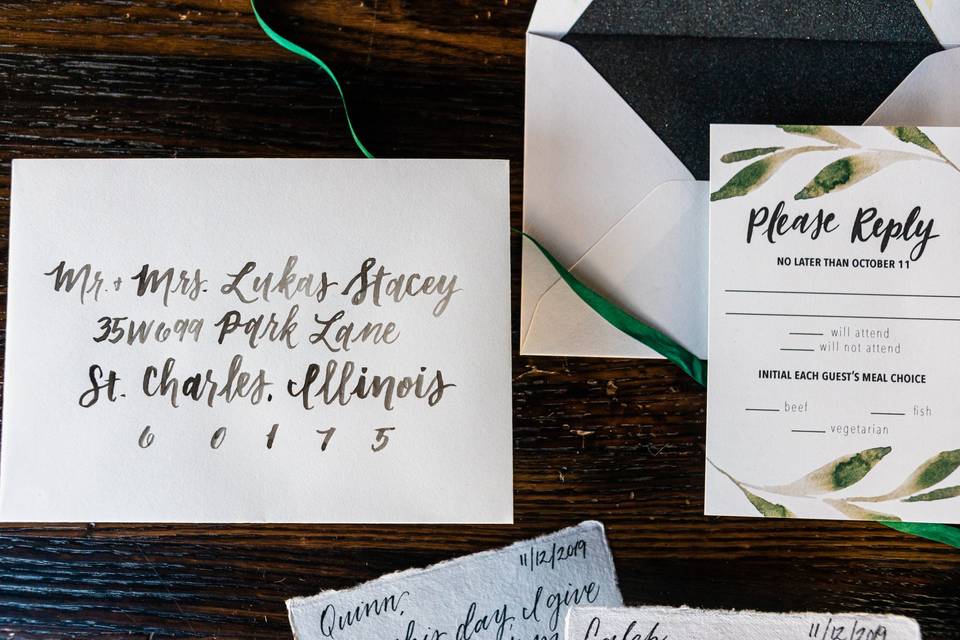 Mr. + Mrs. Lukas Stacey
35W699 Park Lane
St. Charles, Illinois
6 0 1 7 5
Please Reply
NO LATER THAN OCTOBER 11
will attend
will not attend
INITIAL EACH GUEST'S MEAL CHOICE
beef fish
vegetarian
11/12/2019
Quinn,
this day, I give
11/12/2019
Caleb